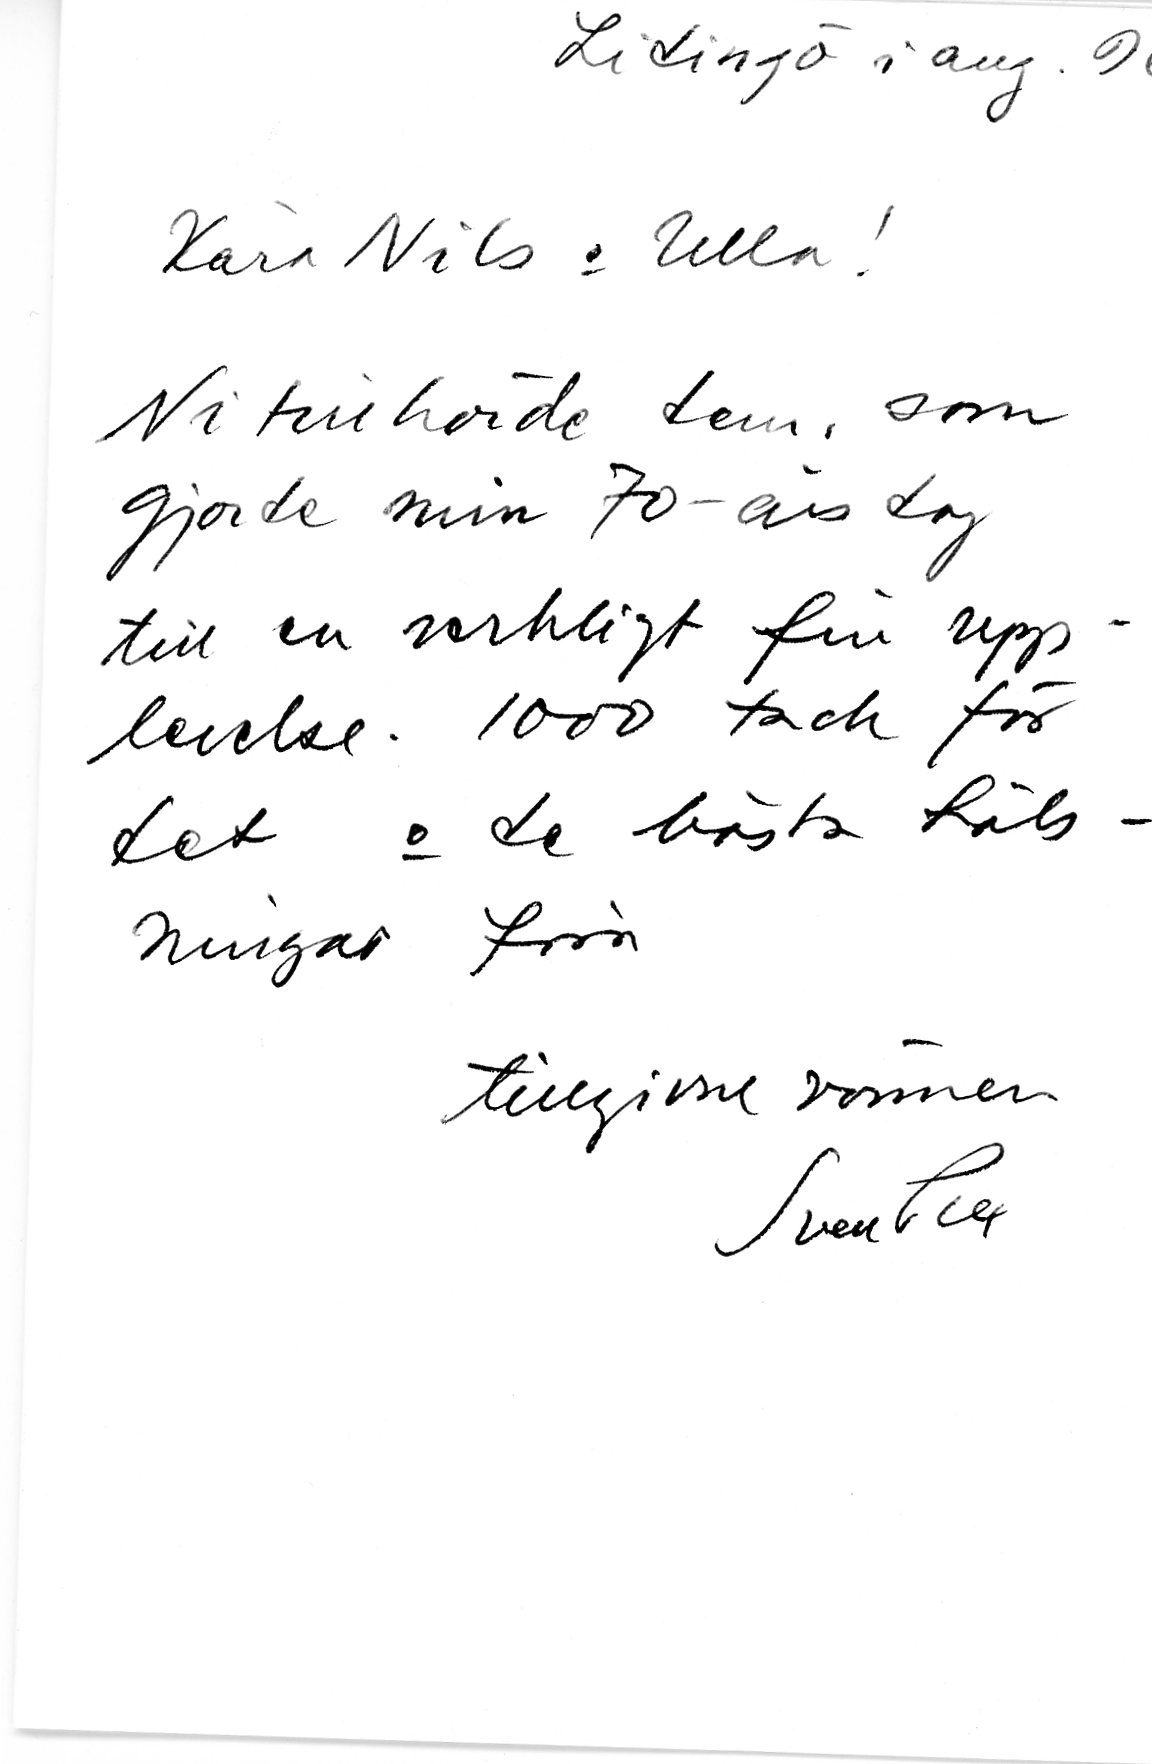 Lidingö i aug. 9
Kära Nils o Ulla!
Ni tillhörde dem, som
gjorde min 70-årsdag
till en verkligt fin upp-
levelse. 1000 tack för
det o de bästa häls-
ningar från
tillgivne vännen
Sven